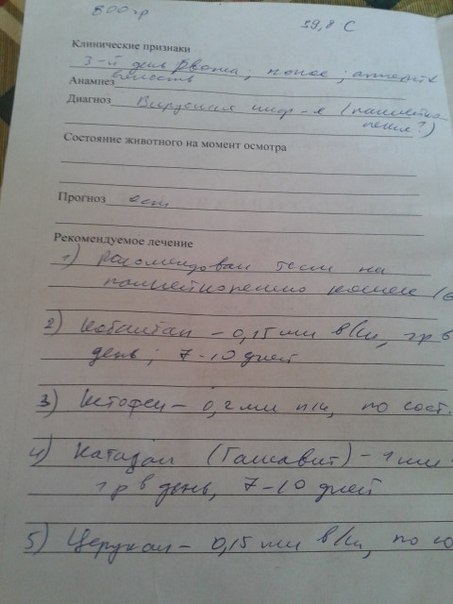 800 гр 39,8 С
Клинические признаки
3-й день рвота, понос, аппетит
Анамнез вялость
Диагноз Вирусная инф-я (панлейко
пения?)
Состояние животного на момент осмотра
Прогноз ост
Рекомендуемое лечение
1) Рекомендован тест на
панлейкопению кошек (
2) Кобактан - 0,15 мл в/м, 1р в
день; 7-10 дней
3) Кетофен - 0,2 мл п/к, по сост.
4) Катозал (Гамавит) - 1 мл
1р в день, 7-10 дней
5) Церукал - 0,15 мл в/м, по со